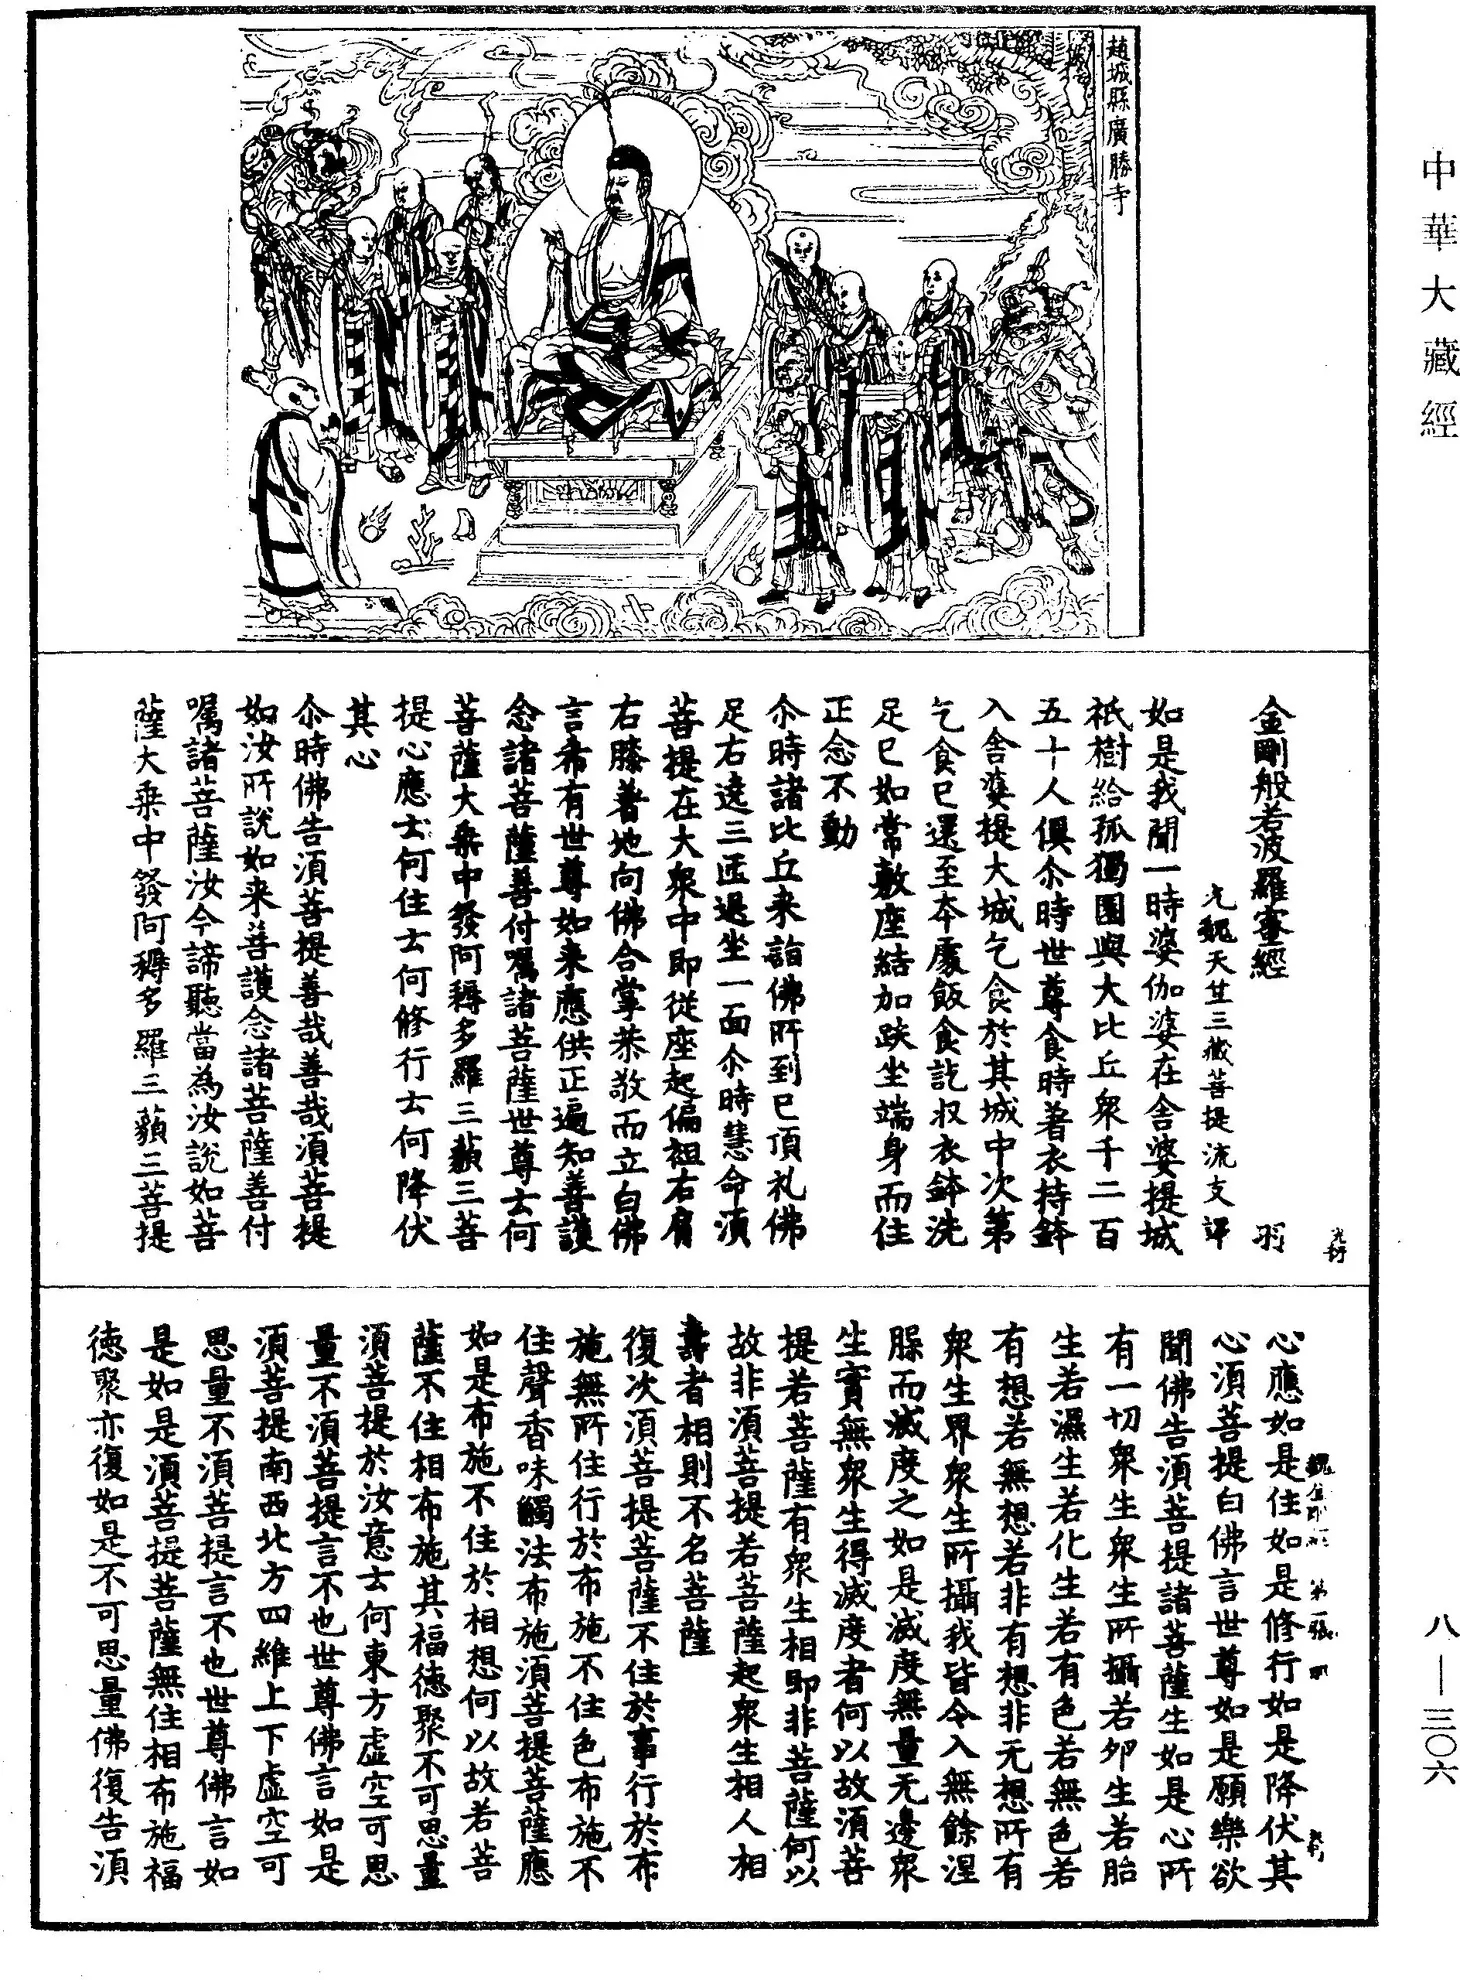 中華大藏經
趙城縣廣勝寺
金剛般若波羅蜜經 羽
元魏天竺三藏菩提流支譯
如是我聞一時婆伽婆在舍婆提城
祇樹給孤獨園與大比丘衆千二百
五十人俱尒時世尊食時著衣持鉢
入舍婆提大城乞食於其城中次第
乞食已還至本處飯食訖収衣鉢洗
足已如常敷座結加趺坐端身而住
正念不動
尒時諸比丘来詣佛所到已頂礼佛
足右遶三匝退坐一面尒時慧命須
菩提在大衆中即從座起偏袒右肩
右膝著地向佛合掌恭敬而立白佛
言希有世尊如来應供正遍知善護
念諸菩薩善付囑諸菩薩世尊云何
菩薩大乗中發阿耨多羅三藐三菩
提心應云何住云何修行云何降伏
其心
尒時佛告須菩提善哉善哉須菩提
如汝所說如来善護念諸菩薩善付
囑諸菩薩汝今諦聽當為汝說如菩
薩大乗中發阿耨多羅三藐三菩提
心應如是住如是修行如是降伏其
心須菩提白佛言世尊如是願樂欲
聞佛告須菩提諸菩薩生如是心所
有一切衆生衆生所攝若卵生若胎
生若濕生若化生若有色若無色若
有想若無想若非有想非无想所有
衆生界衆生所攝我皆令入無餘涅
脲而滅度之如是滅度無量无邊衆
生實無衆生得滅度者何以故須菩
提若菩薩有衆生相即非菩薩何以
故非須菩提若菩薩起衆生相人相
壽者相則不名菩薩
復次須菩提菩薩不住於事行於布
施無所住行於布施不住色布施不
住聲香味觸法布施須菩提菩薩應
如是布施不住於相想何以故若菩
薩不住相布施其福德聚不可思量
須菩提於汝意云何東方虛空可思
量不須菩提言不也世尊佛言如是
須菩提南西北方四維上下虛空可
思量不須菩提言不也世尊佛言如
是如是須菩提菩薩無住相布施福
德聚亦復如是不可思量佛復告須
八—三〇六